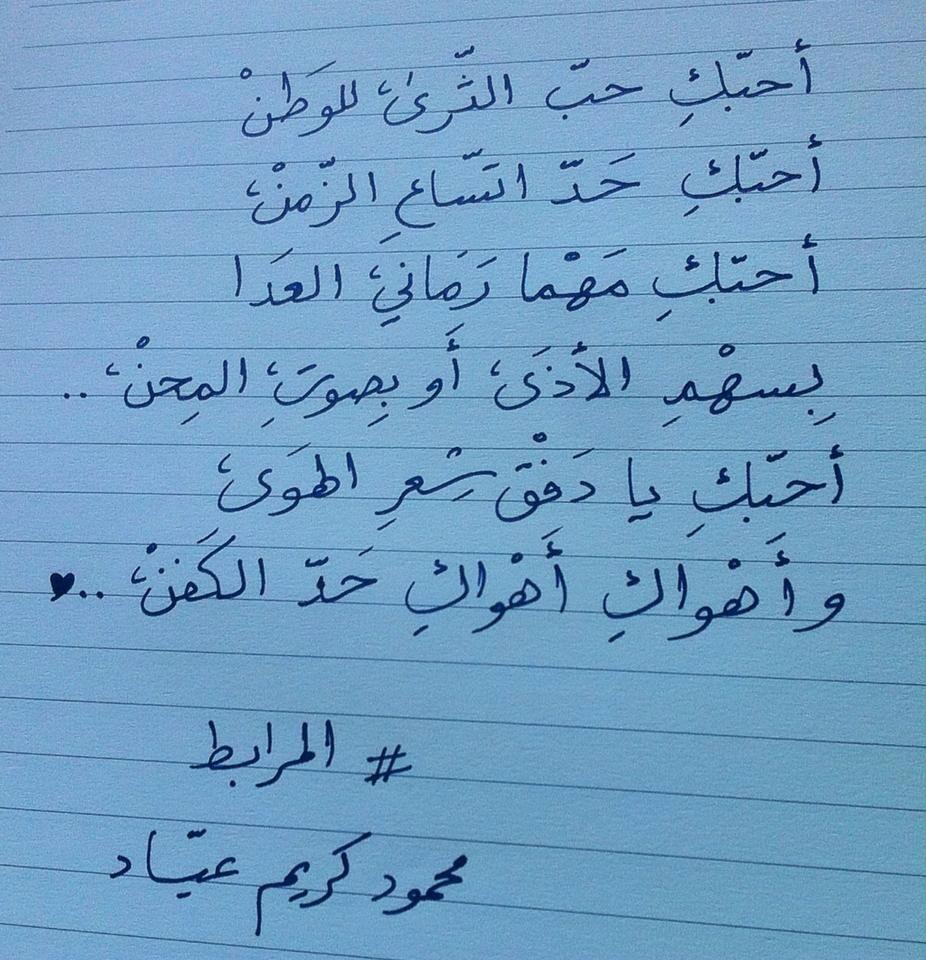 أحبّكِ حبّ الثّرىٰ، للوَطنْ
أحبّكِ حَدّ اتّساعِ الزّمنْ،
أحبّكِ مَهْما رَمَاني، العَدَا
بِسهْمِ الأذَى، أَو بِصوتِ، المِحنْ، ..
أحبّكِ يا دَفْق شِعرِ الهَوَى،
وأَهْواكِ أَهْواكِ حَدّ الكَفنْ، .. ♥
# المرابط
محمود كريم عيّاد